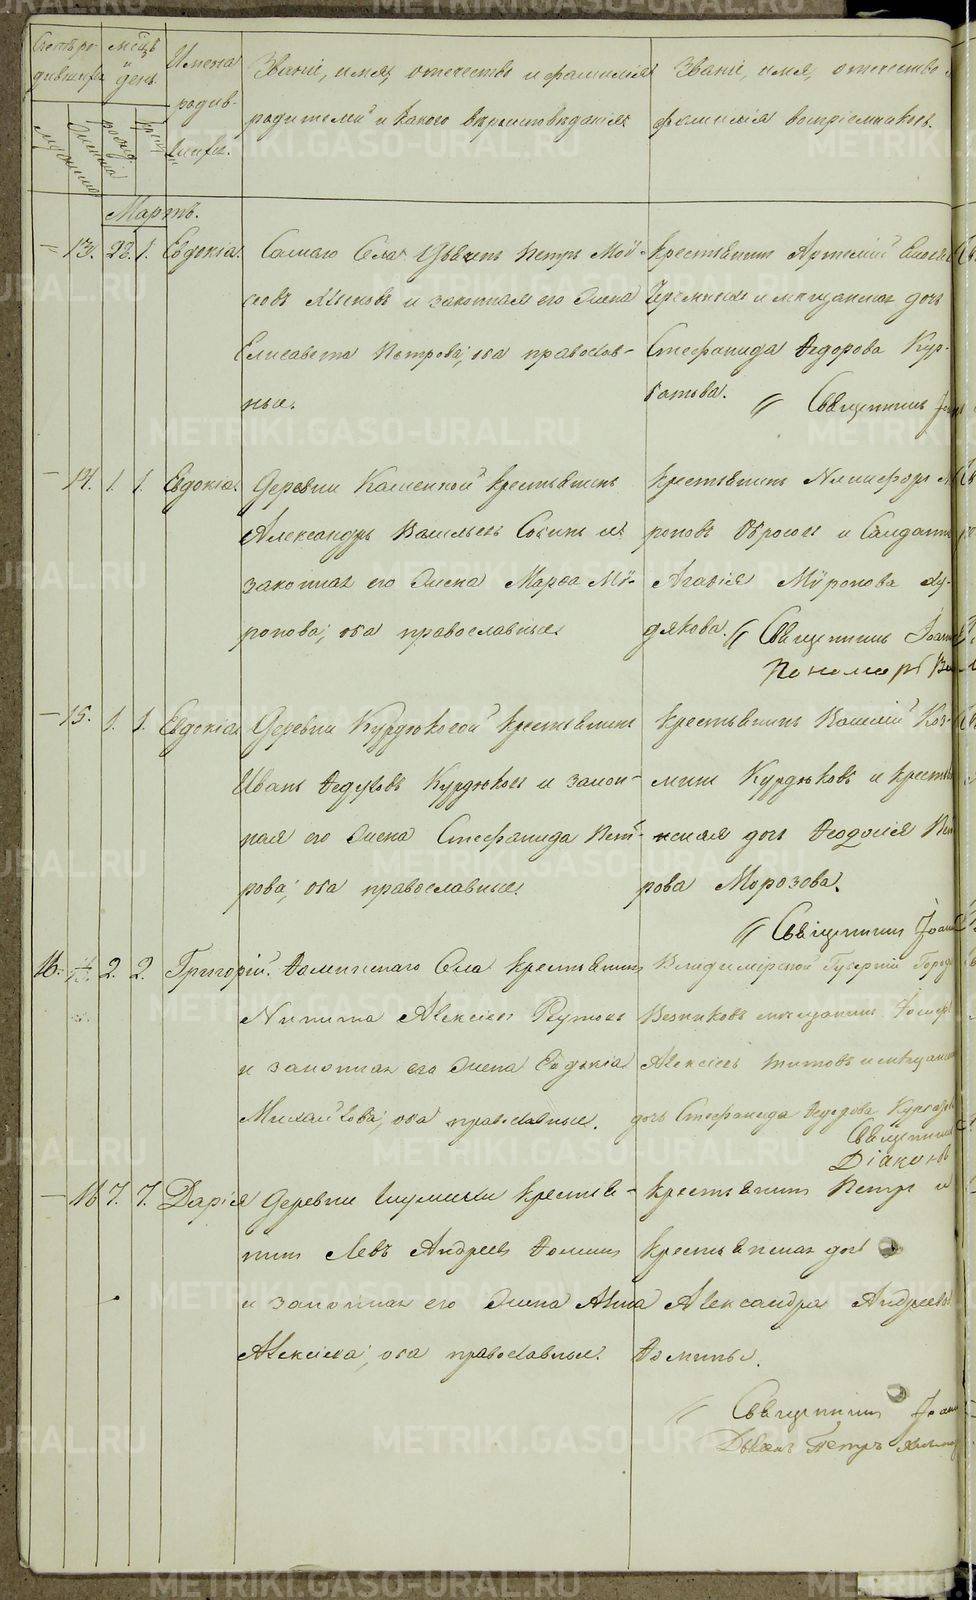 Счетъ ро-
дившихся
мужеска
женска
Мѣсяцъ
и
день
рожд.
крещ.
Имена
родив-
шихся.
Званіе, имя, отечество и фамилія
родителей и какого вѣроисповѣданія
Званіе, имя, отечество и
фамилія воспріемниковъ.
Мартъ.
13. 28. 1. Евдокія.
Самаго Села Дьячекъ Петръ Мои-
сеевъ и законная его жена
Елисавета Петрова; оба православ-
ные.
Крестьянинъ Артемій
и мещанская дочь
Стефанида Ѳедорова Кур-
батова.
Священникъ
14. 1. 1. Евдокія.
Деревни Каменной крестьянинъ
Александръ Васильевъ и
законная его жена Марѳа Мѵ-
ронова; оба православные
Крестьянинъ Никифоръ
роновъ и Солдатк
Агаѳія Мѵронова Ху-
дякова. Священникъ Іоан
Пономарь
15. 1. 1. Евдокія
Деревни Курдюковой крестьянинъ
Иванъ Ѳедуловъ Курдюковъ и закон-
ная его жена Стефанида Пет-
рова; оба православные.
Крестьянинъ Василій Коз-
минъ Курдюковъ и кресть
нская дочь Ѳеодосія Пет
рова Морозова.
Священникъ Іоан
16. 2. 2. Григорій.
Ѳоминскаго Села крестьянинъ
Никита Алексѣевъ
и законная его жена Евдокія
Михайлова; оба православные.
Владимірской Губерніи Города
Вязниковъ мещанинъ
Алексѣевъ Титовъ и мещанская
дочь Стефанида Ѳедорова Курбатова
Священникъ
Діаконъ
16 7. 7. Дарія
Деревни крестья-
нинъ Левъ Андреевъ Ѳоминъ
и законная его жена Анна
Алексѣева; оба православные.
Крестьянинъ Петръ и
крестьянская дочь
Александра Андреева
Ѳомины.
Священникъ Іоан
Дьячекъ Петръ
METRIKI.GASO-URAL.RU